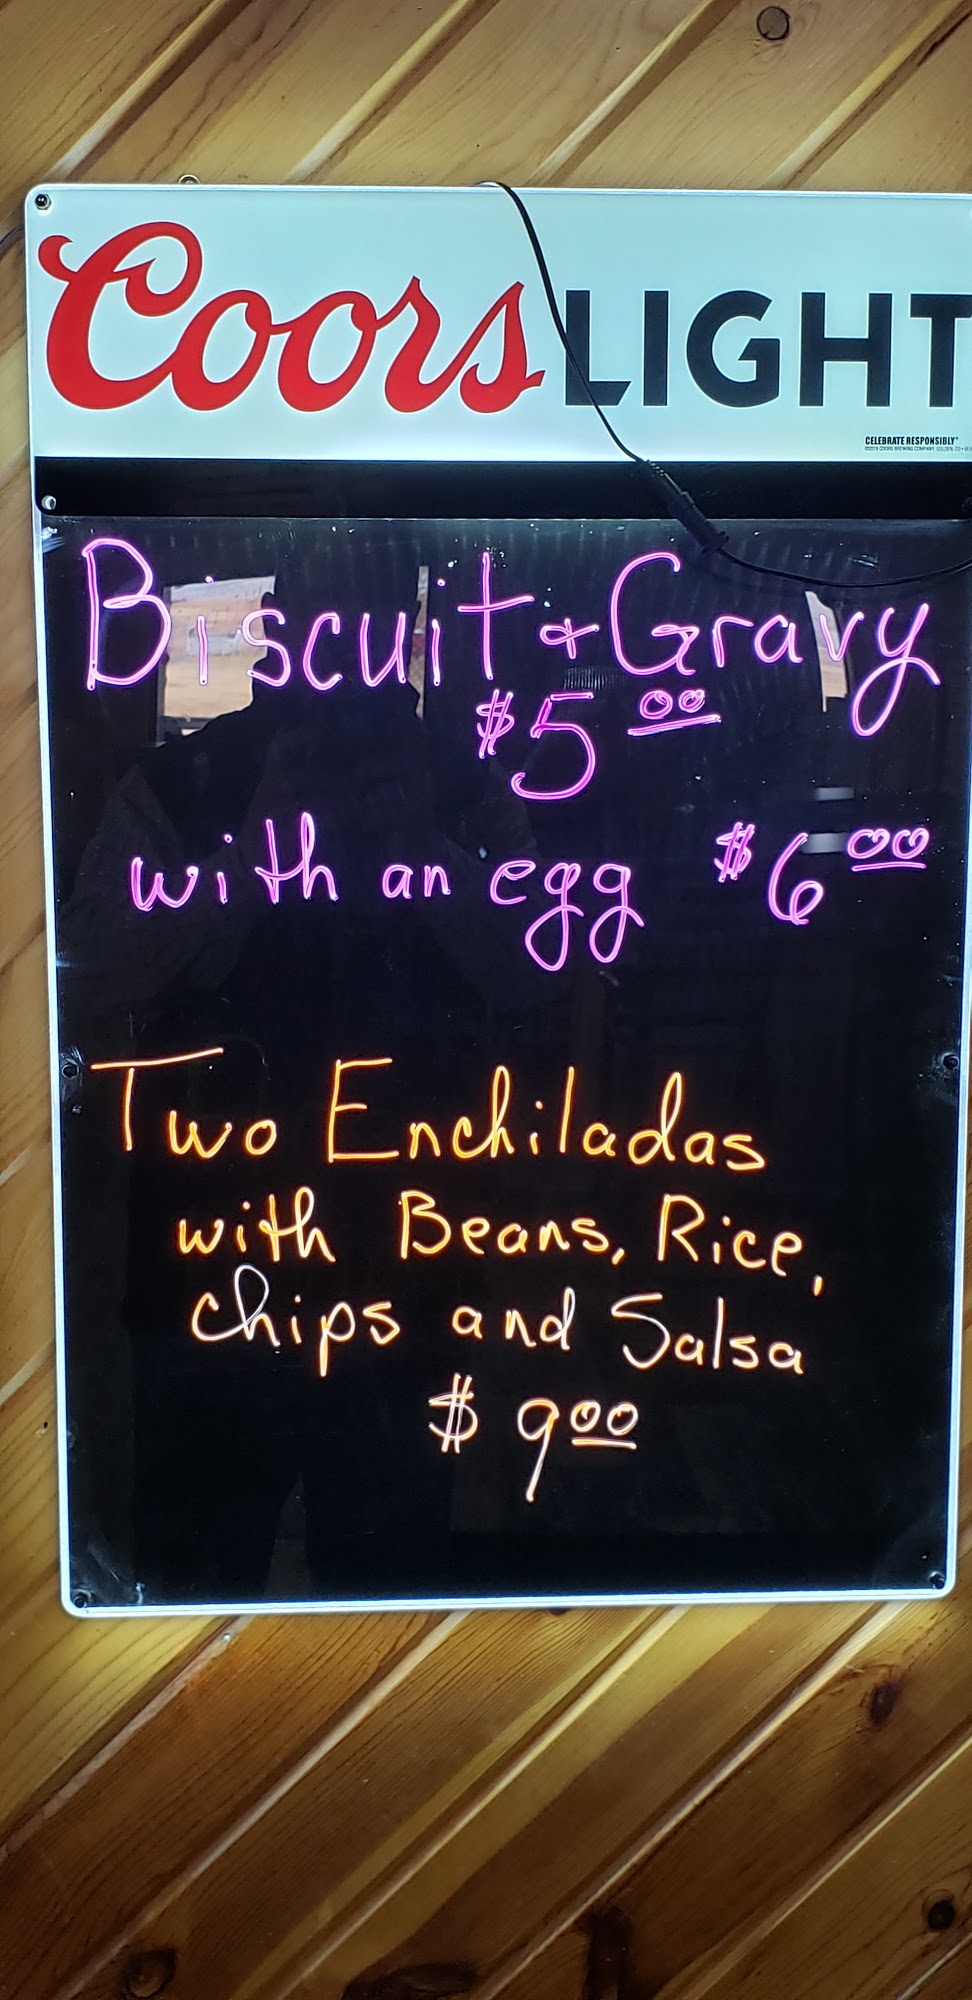 Coors LIGHT
CELEBRATE RESPONSIBLY®
Biscuit & Gravy
$5 00
with an egg $6 00
Two Enchiladas
with Beans, Rice,
chips and Salsa
$ 9 00